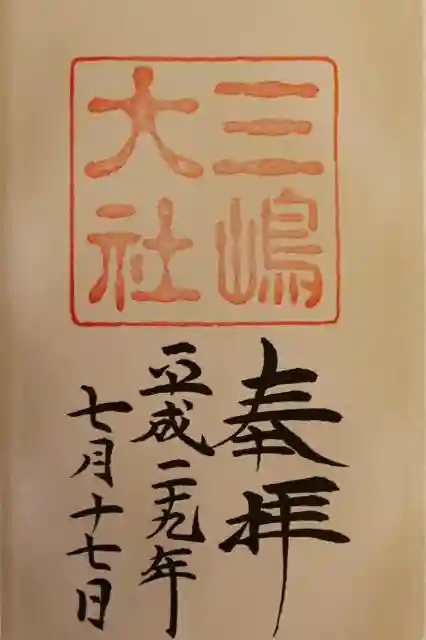 三嶋
大社
奉拝
平成二十九年
七月十七日